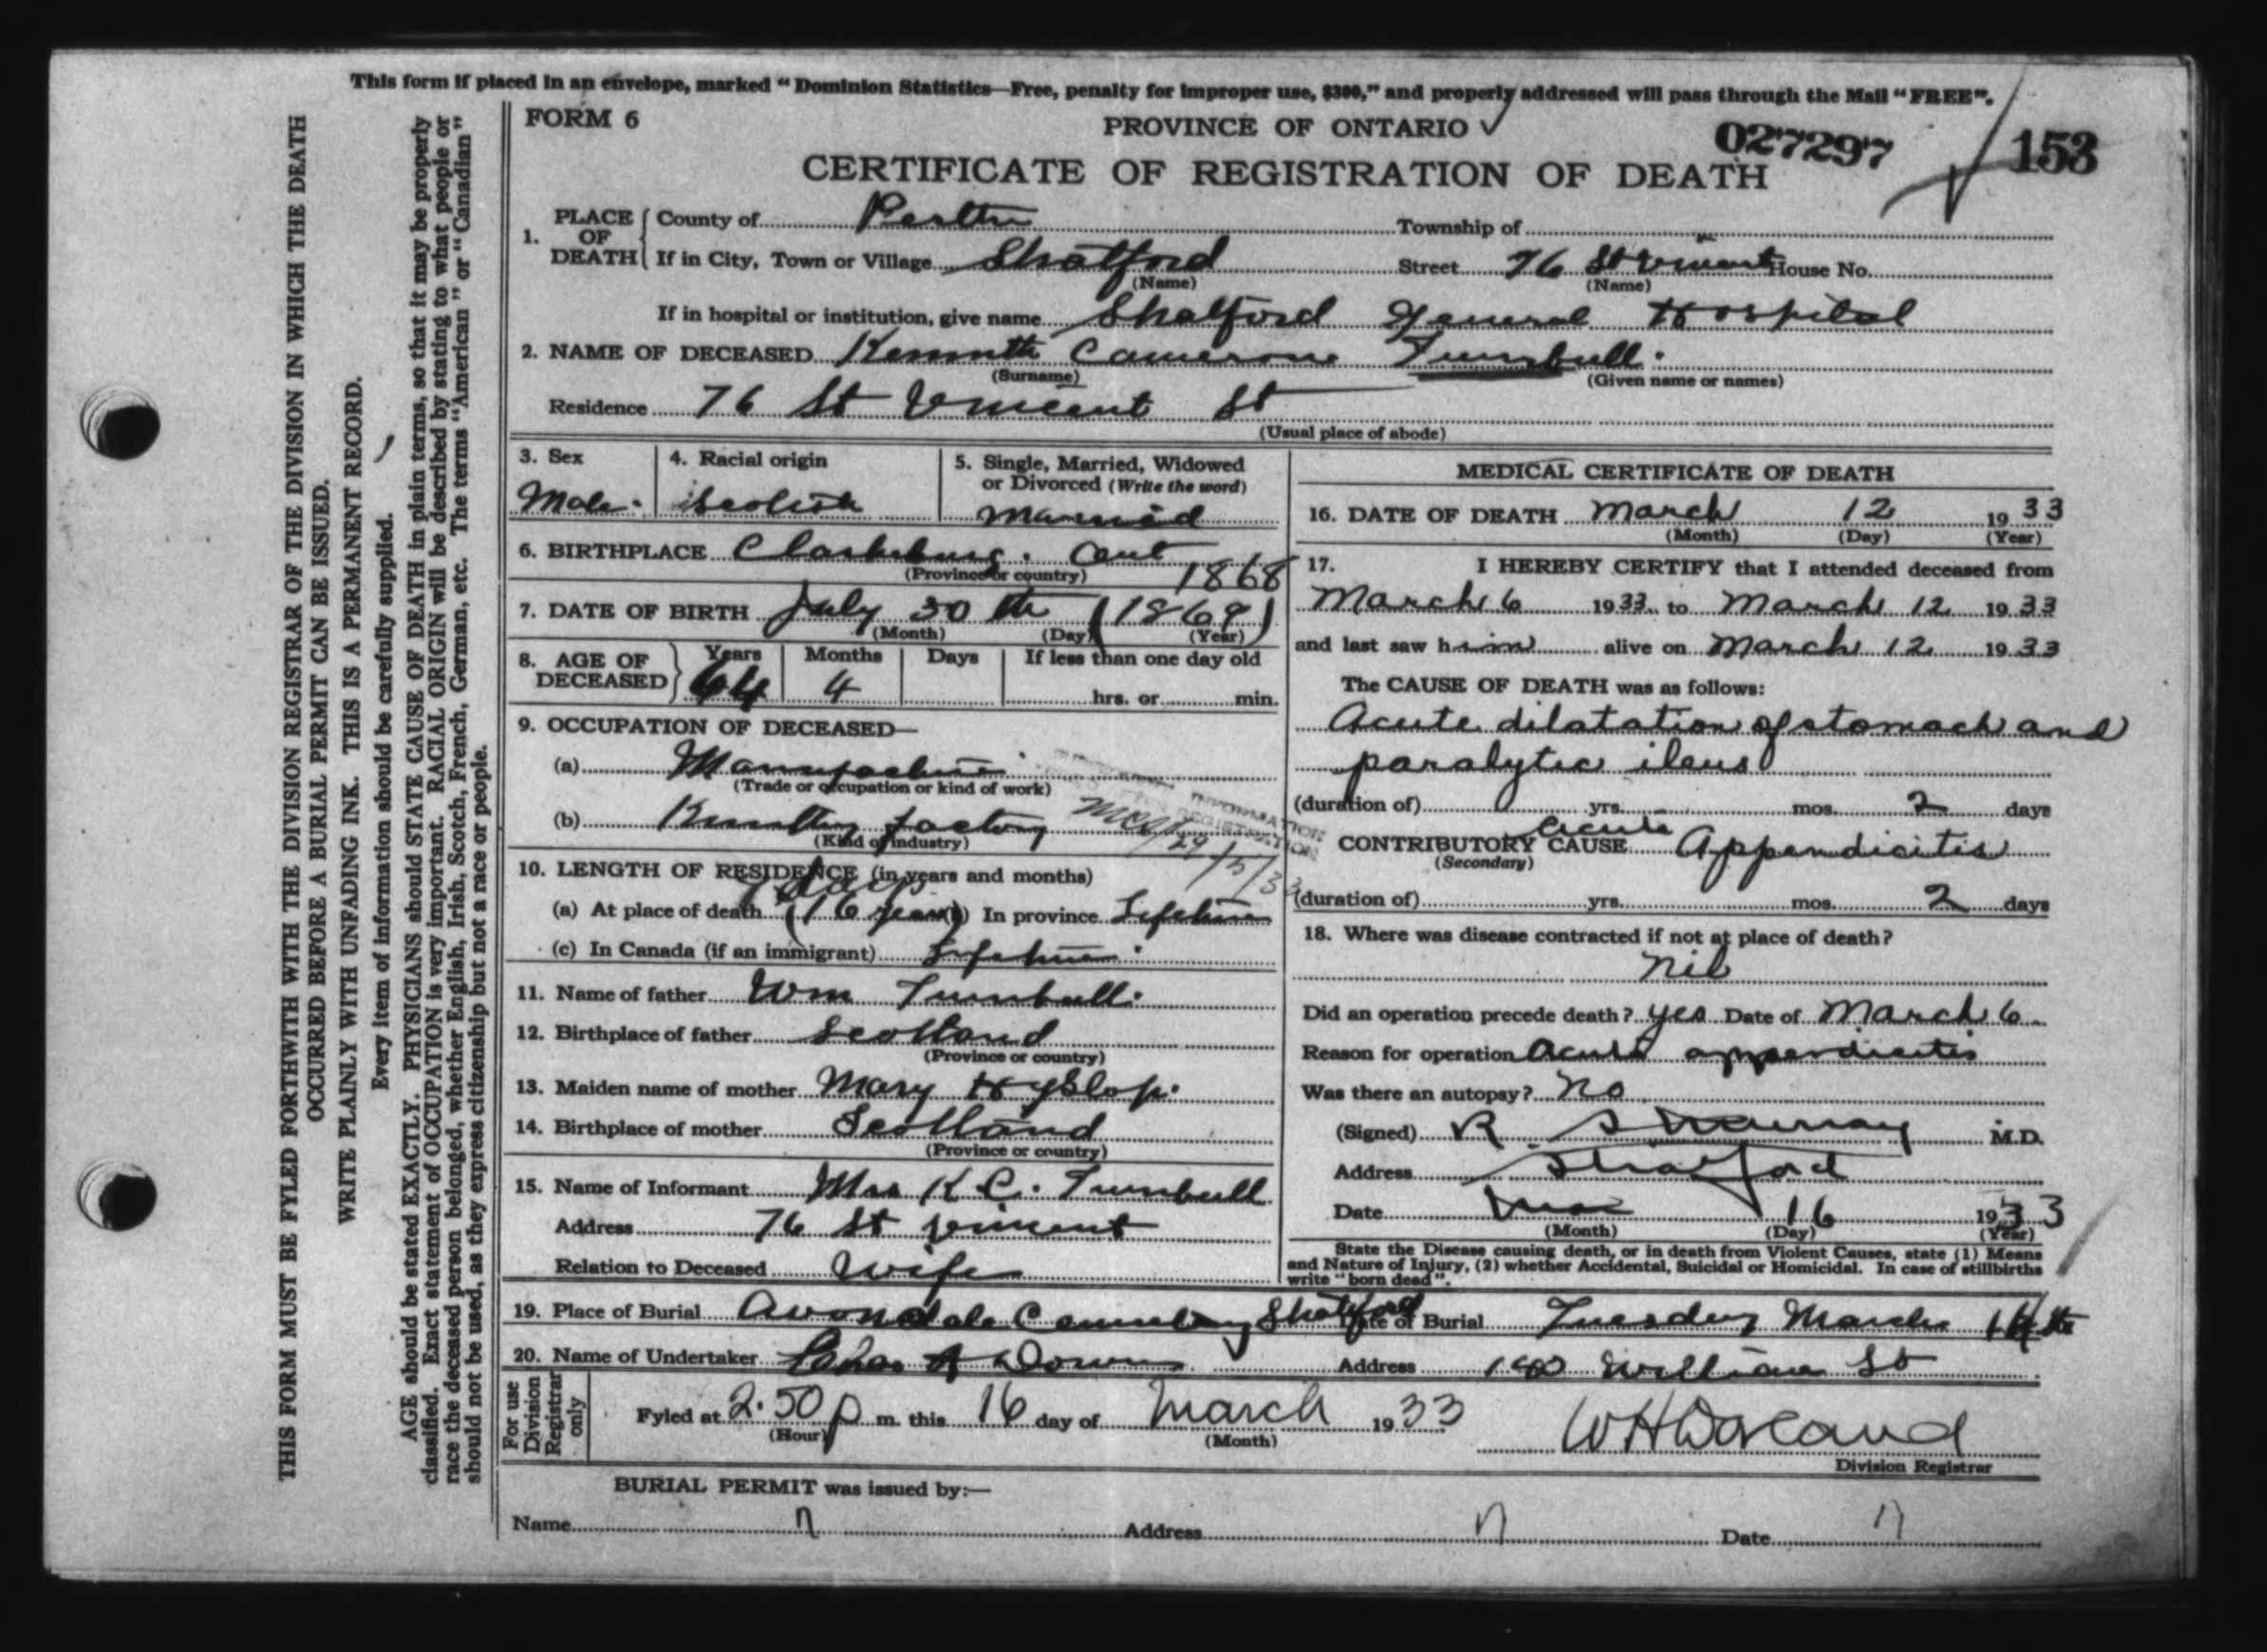 This form if placed in an envelope, marked “Dominion Statistics—Free, penalty for improper use, $300,” and properly addressed will pass through the Mail “FREE”.
FORM 6
PROVINCE OF ONTARIO
027297
153
CERTIFICATE OF REGISTRATION OF DEATH
1. PLACE OF DEATH County of Perth Township of
If in City, Town or Village Stratford Street 76 St Vincent House No.
(Name) (Name)
If in hospital or institution, give name Stratford General Hospital
2. NAME OF DECEASED Kenneth Cameron Turnbull.
(Surname) (Given name or names)
Residence 76 St Vincent St
(Usual place of abode)
3. Sex Male
4. Racial origin Scotish
5. Single, Married, Widowed or Divorced (Write the word)
Married
6. BIRTHPLACE Clarksburg. Ont
(Province or country)
1868
7. DATE OF BIRTH July 30th (1869)
(Month) (Day) (Year)
8. AGE OF DECEASED Years Months Days If less than one day old
64 4 hrs. or min.
9. OCCUPATION OF DECEASED—
(a) Manufacturer
(Trade or occupation or kind of work)
(b) Knitting factory
(Kind of industry)
INFORMATION
REGISTRATION
29/5/33
10. LENGTH OF RESIDENCE (in years and months)
7 days
(a) At place of death (16 years) In province Lifetime
(c) In Canada (if an immigrant) Lifetime
11. Name of father Wm Turnbull.
12. Birthplace of father Scotland
(Province or country)
13. Maiden name of mother Mary Hyslop.
14. Birthplace of mother Scotland
(Province or country)
15. Name of Informant Mrs K C. Turnbull
Address 76 St Vincent
Relation to Deceased Wife
MEDICAL CERTIFICATE OF DEATH
16. DATE OF DEATH March 12 1933
(Month) (Day) (Year)
17. I HEREBY CERTIFY that I attended deceased from
March 6 1933 to March 12 1933
and last saw him alive on March 12 1933
The CAUSE OF DEATH was as follows:
Acute dilatation of stomach and
paralytic ileus
(duration of) yrs. mos. 2 days
CONTRIBUTORY CAUSE acute Appendicitis
(Secondary)
(duration of) yrs. mos. 2 days
18. Where was disease contracted if not at place of death?
nil
Did an operation precede death? yes Date of March 6
Reason for operation Acute appendicitis
Was there an autopsy? no
(Signed) R. S. Murray M.D.
Address Stratford
Date Mar 16 1933
(Month) (Day) (Year)
State the Disease causing death, or in death from Violent Causes, state (1) Means
and Nature of Injury, (2) whether Accidental, Suicidal or Homicidal. In case of stillbirths
write “born dead”.
19. Place of Burial Avondale Cemetery Stratford Date of Burial Tuesday March 14th
20. Name of Undertaker Chas A Down Address William St
For use Division Registrar only
Fyled at 2.50 p m. this 16 day of March 1933
(Hour) (Month)
Division Registrar
BURIAL PERMIT was issued by:—
Name Address Date
THIS FORM MUST BE FYLED FORTHWITH WITH THE DIVISION REGISTRAR OF THE DIVISION IN WHICH THE DEATH
OCCURRED BEFORE A BURIAL PERMIT CAN BE ISSUED.
WRITE PLAINLY WITH UNFADING INK. THIS IS A PERMANENT RECORD.
Every item of information should be carefully supplied.
AGE should be stated EXACTLY. PHYSICIANS should STATE CAUSE OF DEATH in plain terms, so that it may be properly
classified. Exact statement of OCCUPATION is very important. RACIAL ORIGIN will be described by stating to what people or
race the deceased person belonged, whether English, Irish, Scotch, French, German, etc. The terms “American” or “Canadian”
should not be used, as they express citizenship but not a race or people.